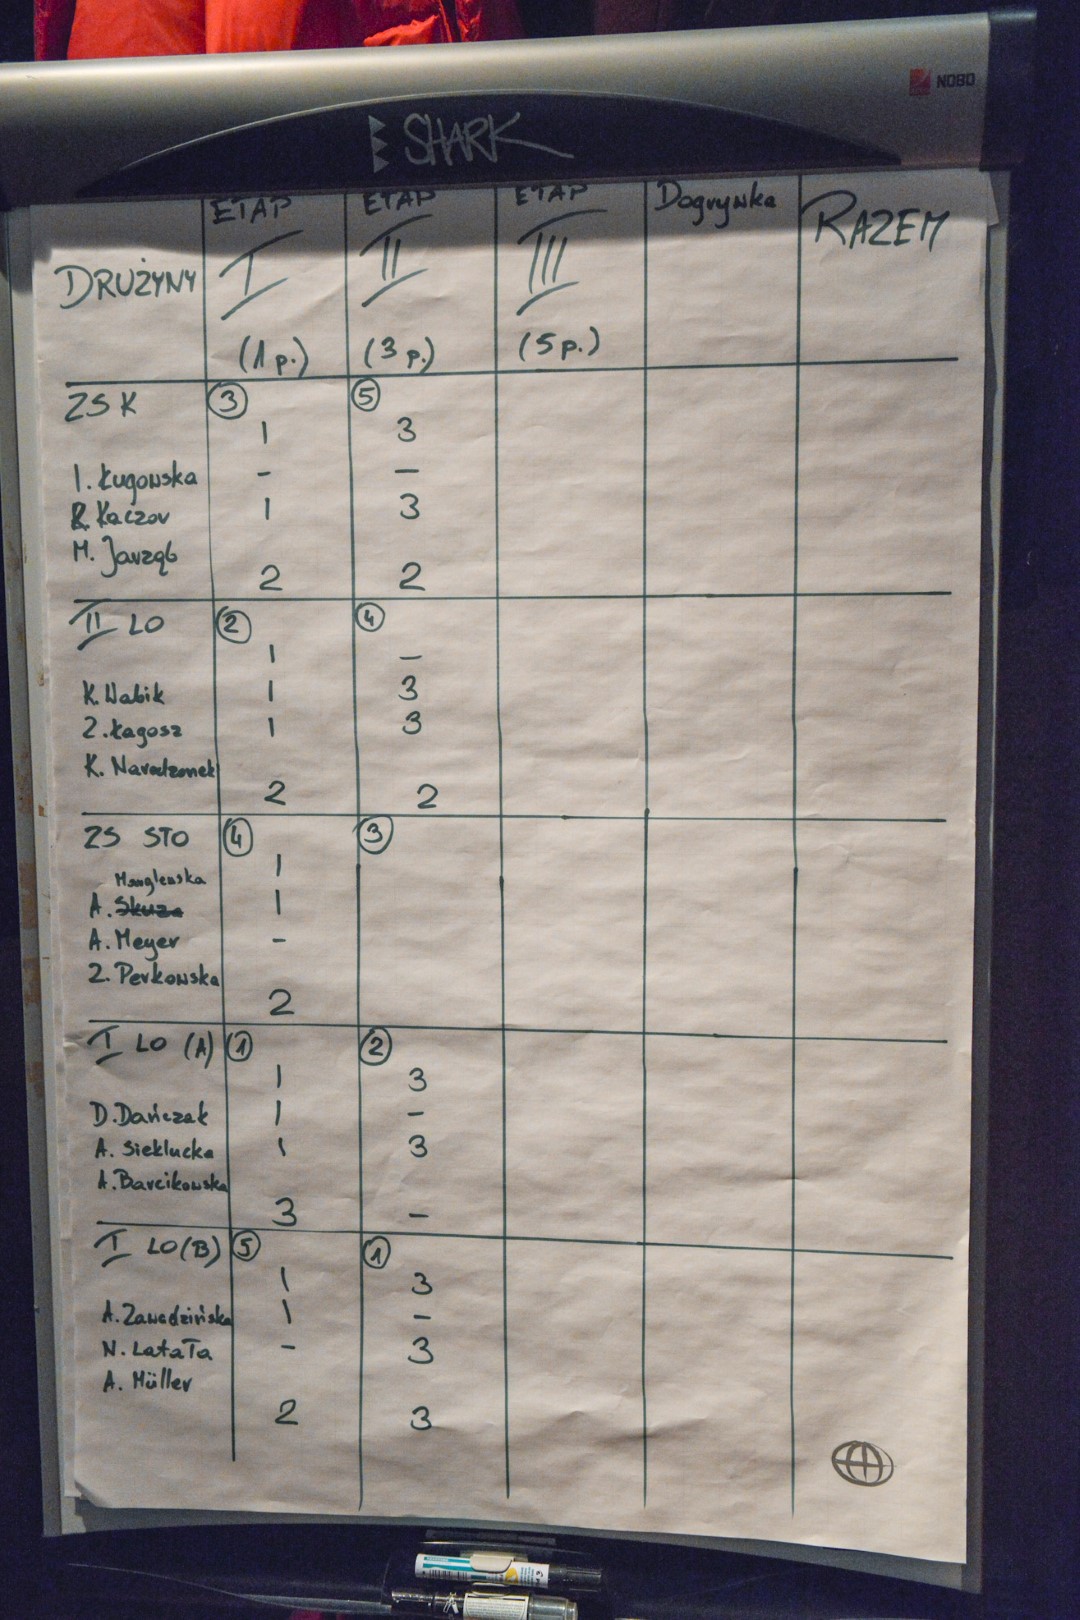 NOBO
SHARK
DRUŻYNY
ETAP I (1 p.)
ETAP II (3 p.)
ETAP III (5 p.)
Dogrywka
RAZEM
ZSK ③ ⑤
1 3
I. Ługowska - –
R. Kaczor 1 3
M. Jarząb
2 2
II LO ② ④
1 –
K. Wabik 1 3
Z. Łagosz 1 3
K. Naradzonek
2 2
ZS STO ④ ③
1
Manglewska
A. Skuza 1
A. Meyer -
Z. Perkowska
2
I LO (A) ① ②
1 3
D. Dańczak 1 –
A. Sieklucka 1 3
A. Barcikowska
3 –
I LO (B) ⑤ ①
1 3
A. Zawadzińska 1 –
N. Latała - 3
A. Müller
2 3